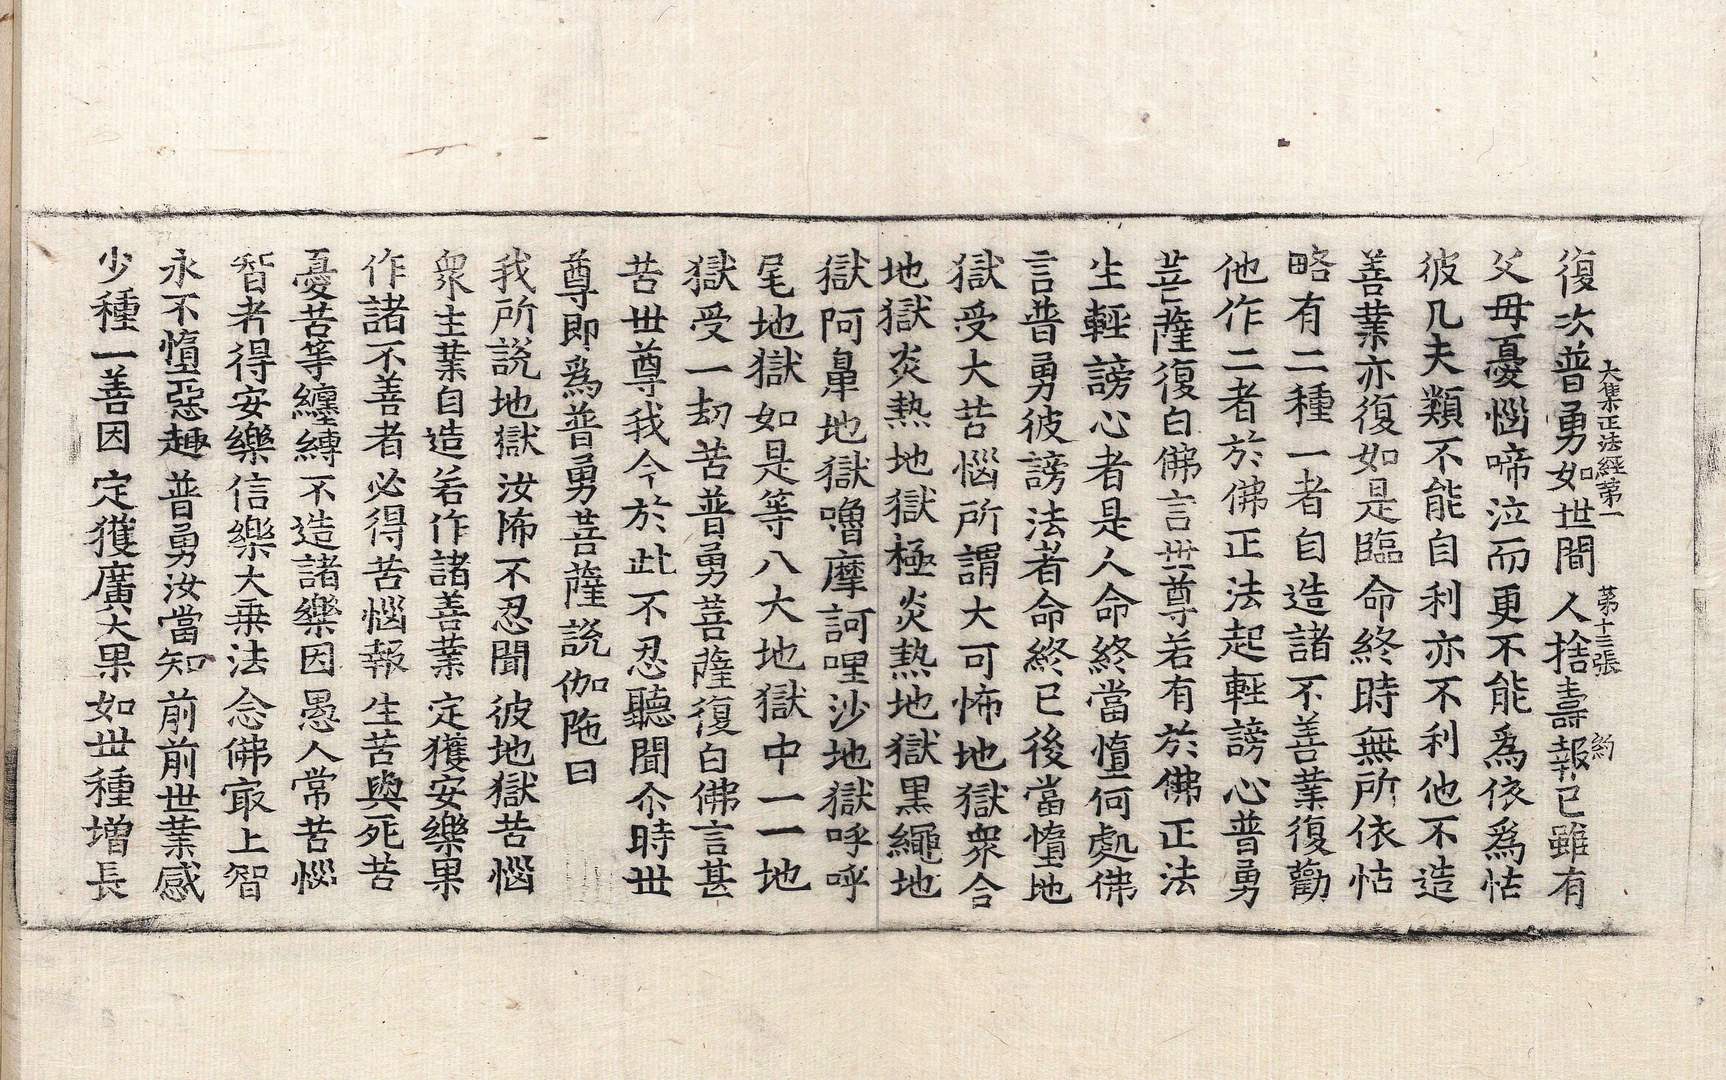 大集正法經第一 第十三張 約
復次普勇如世間人捨壽報已雖有
父母憂惱啼泣而更不能爲依爲怙
彼凡夫類不能自利亦不利他不造
善業亦復如是臨命終時無所依怙
略有二種一者自造諸不善業復勸
他作二者於佛正法起輕謗心普勇
菩薩復白佛言世尊若有於佛正法
生輕謗心者是人命終當墮何處佛
言普勇彼謗法者命終已後當墮地
獄受大苦惱所謂大可怖地獄衆合
地獄炎熱地獄極炎熱地獄黑繩地
獄阿鼻地獄嚕摩訶哩沙地獄呼呼
尾地獄如是等八大地獄中一一地
獄受一劫苦普勇菩薩復白佛言甚
苦世尊我今於此不忍聽聞尒時世
尊即爲普勇菩薩說伽陁曰
我所說地獄汝怖不忍聞彼地獄苦惱
衆生業自造若作諸善業定獲安樂果
作諸不善者必得苦惱報生苦與死苦
憂苦等纏縛不造諸樂因愚人常苦惱
智者得安樂信樂大乗法念佛㝡上智
永不墮惡趣普勇汝當知前前世業感
少種一善因定獲廣大果如世種增長